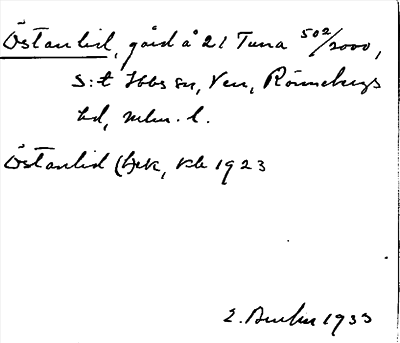 Östanlid, gård å 21 Tuna 502/2000,
S:t Ibbs sn, Ven, Rönnebergs
hd, Mlm. l.
Östanlid (bek, kb 1923
1933